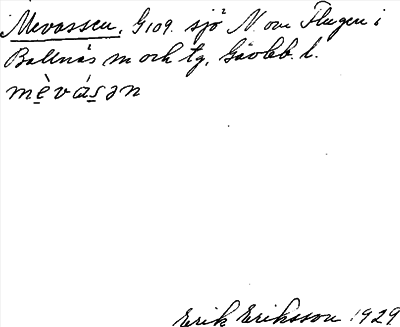 Mevassen, G109. sjö N. om Flugen i
Bollnäs sn och tg, Gävleb. l.
mèvásən
Erik Eriksson 1929